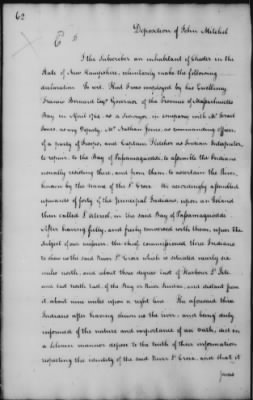 62
Deposition of John Mitchel
I the Subscriber an inhabitant of Chester in the
State of New Hampshire, voluntarily make the following
declaration to wit. That I was employed by his Excellency
Francis Bernard Esqr Governor of the Province of Massachusetts
Bay in April 1764 as a Surveyor in company with Mr Israel
Jones, as my Deputy, Mr Nathan Jones, as commanding officer
of a party of troops, and Captain Fletcher as Indian Interpreter,
to repair to the Bay of Passamaquoddi, to assemble the Indians
usually residing there, and from them to ascertain the River,
known by the name of the St Croix. We accordingly assembled
upwards of forty of the principal Indians, upon an Island
then called in the said Bay of Passamaquoddi.
After having fully, and freely conversed with them, upon the
subject of our mission, the chief commissioned three Indians
to shew us the said River St Croix which is situated nearly six
miles north, and about three degrees east of Harbour
and east north east of the Bay or River and distant from
it about nine miles upon a right line. The aforesaid three
Indians after having shown us the river, and being duly
informed of the nature and importance of an oath, did in
a solemn manner depose to the truth of their information
respecting the identity of the said River St Croix, and that it